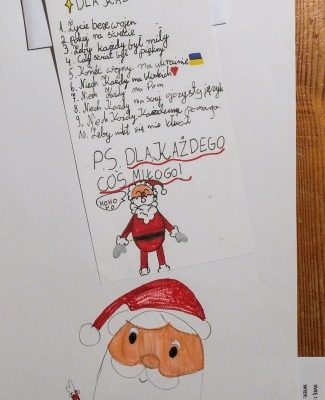 DLA K
1. Życie bez wojen
2. Pokój na świecie
3. Żeby każdy był miły
4. Cały świat był piękny
5. Koniec wojny na ukrainie
6. Niech Każdy ma bliskich
7. Niech Każdy ma Dom
8. Niech Każdy ma swój ojczysty język
9. Niech Każdy Każdemu pomaga
10. Żeby nikt się nie kłócił
P.S. DLA KAŻDEGO
COŚ MIŁEGO!
HOHO